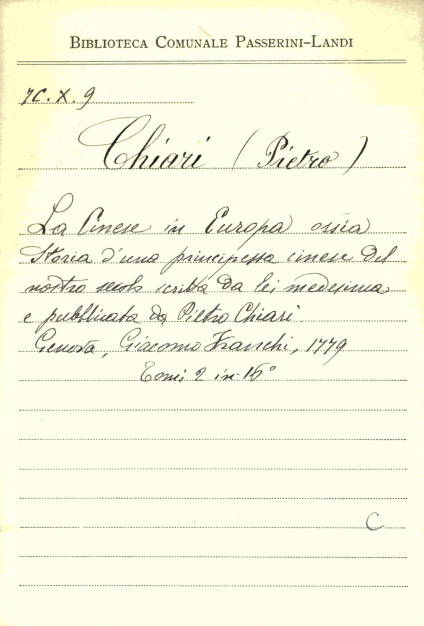 BIBLIOTECA COMUNALE PASSERINI-LANDI
7C. X. 9
Chiari (Pietro)
La Cinese in Europa ossia
Storia d'una principessa cinese del
nostro secolo scritta da lei medesima
e pubblicata da Pietro Chiari
Genova, Giacomo Franchi, 1779
Tomi 2 in 16°
C